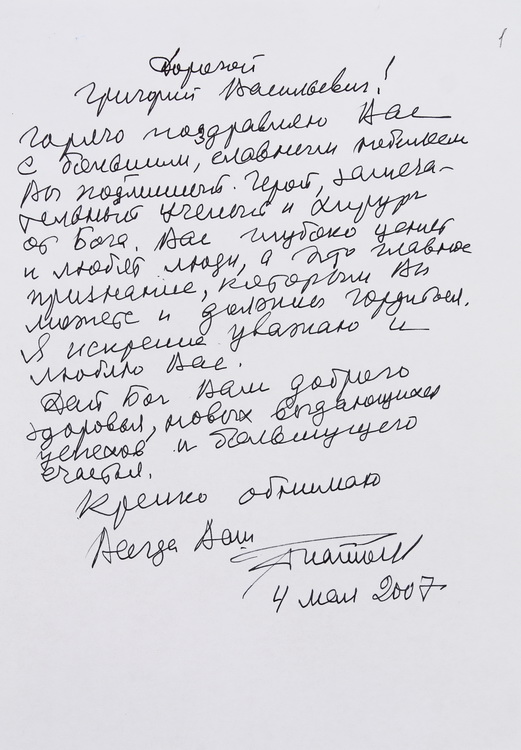 1
Дорогой
Григорий Васильевич!
Горячо поздравляю Вас
с большим, славным юбилеем
Вы подлинный Герой, замеча-
тельный ученый и хирург
от Бога. Вас глубоко ценят
и любят люди, а это главное
признание, которым Вы
можете и должны гордиться.
Я искренне уважаю и
люблю Вас.
Дай Бог Вам доброго
здоровья, новых выдающихся
успехов и большущего
счастья.
Крепко обнимаю
Всегда Ваш
4 мая 2007